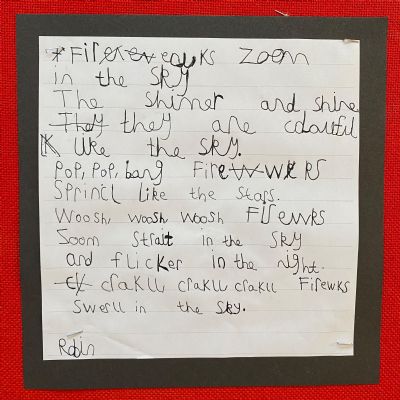 Fireweuks zoom
in the sky
The shimer and shine
They they are colouful
K like the sky.
Pop, Pop, bang Firewwkrs
Sprincl like the stars.
Woosh, woosh woosh Firewks
Zoom strait in the sky
and flicker in the night.
crakll crakll crakll Firewks
swerll in the sky.
Robin